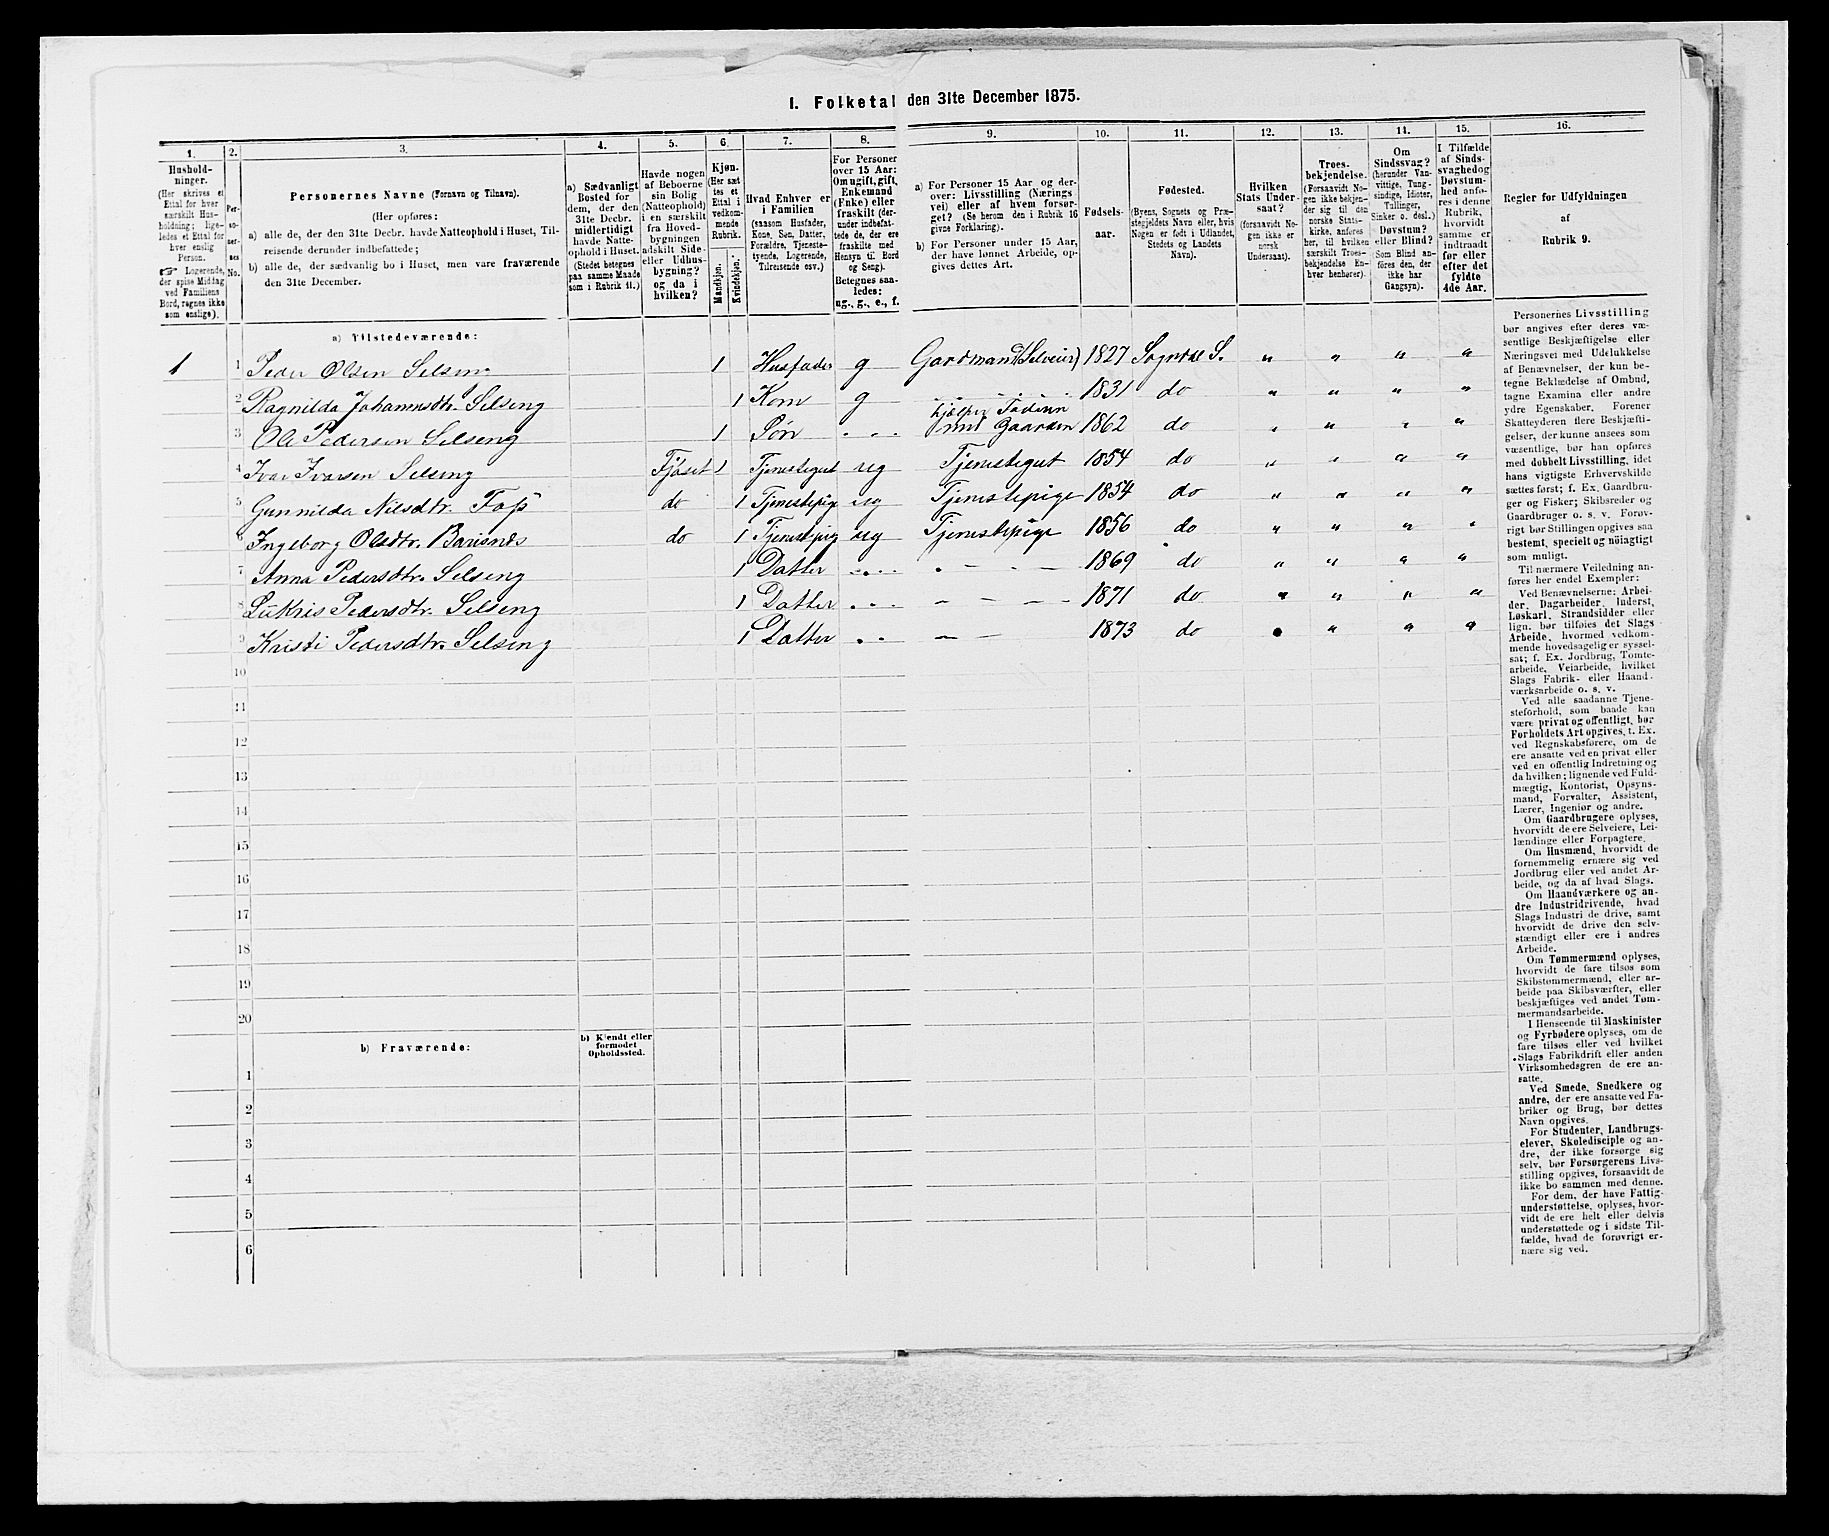 I. Folketal den 31te December 1875.
1. 2. 3. 4. 5. 6. 7. 8. 9. 10. 11. 12. 13. 14. 15. 16.
Husholdninger.
(Her skrives et
Ettal for hver
særskilt Hus-
holdning; lige-
ledes et Ettal for
hver enslig
Person.
☞ Logerende,
der spise Middag
ved Familiens
Bord, regnes ikke
som enslige).
Personernes No.
Personernes Navne (Fornavn og Tilnavn).
(Her opføres:
a) alle de, der den 31te Decbr. havde Natteophold i Huset, Til-
reisende derunder indbefattede;
b) alle de, der sædvanlig bo i Huset, men vare fraværende
den 31te December.
a) Sædvanligt
Bosted for
dem, der den
31te Decbr.
midlertidigt
havde Natte-
ophold i Huset.
(Stedet betegnes
paa samme Maade
som i Rubrik 11.)
Havde nogen
af Beboerne
sin Bolig
(Natteophold)
i en særskilt
fra Hoved-
bygningen
adskilt Side-
eller Udhus-
bygning?
og da i
hvilken?
Kjøn.
(Her sæt-
tes et
Ettal i
vedkom-
mende
Rubrik.)
Mandkjøn.
Kvindekjøn.
Hvad Enhver er
i Familien
(saasom Husfader,
Kone, Søn, Datter,
Forældre, Tjeneste-
tyende, Logerende,
Tilreisende osv.)
For Personer
over 15 Aar:
Om ugift, gift,
Enkemand
(Enke) eller
fraskilt (der-
under indbefat-
tede de, der ere
fraskilte med
Hensyn til Bord
og Seng).
Betegnes saa-
ledes:
ug., g., e., f.
a) For Personer 15 Aar og der-
over: Livsstilling (Nærings-
vei) eller af hvem forsør-
get? (Se herom den i Rubrik 16
givne Forklaring).
b) For Personer under 15 Aar,
der have lønnet Arbeide, op-
gives dettes Art.
Fødsels-
aar.
Fødested.
(Byens, Sognets og Præ-
stegjeldets Navn eller, hvis
Nogen er født i Udlandet,
Stedets og Landets
Navn).
Hvilken
Stats Under-
saat?
(forsaavidt No-
gen ikke er
norsk
Undersaat).
Troes-
bekjendelse.
(Forsaavidt No-
gen ikke bekjen-
der sig til den
norske Stats-
kirke, anføres
her, til hvilken
særskilt Troes-
bekjendelse En-
hver henhører).
Om
Sindssvag?
(herunder Van-
vittige, Tung-
sindige, Idioter,
Tullinger,
Sinker o. desl.)
Døvstum?
eller Blind?
(Som Blind an-
føres den, der
ikke har
Gangsyn).
I Tilfælde
af Sinds-
svaghed og
Døvstum-
hed anfø-
res i denne
Rubrik,
hvorvidt
samme er
indtraadt
før eller
efter det
fyldte
4de Aar.
Regler for Udfyldningen
af
Rubrik 9.
a) Tilstedeværende:
1 1 Peder Olsen Selseng 1 Husfader g Gardmand (Selveier) 1827 Sogndal S. " " " "
2 Ragnilda Johannsdtr. Selseng 1 Kone g 1831 do " " " "
3 Ole Pedersen Selseng 1 Søn hjælper Faderen med Gaarden 1862 do " " " "
4 Ivar Ivarsen Selseng Fjøset 1 Tjenestegut ug Tjenestegut 1854 do " " " "
5 Gunnilda Nilsdtr. Foss do 1 Tjenestepige ug Tjenestepige 1854 do " " " "
6 Ingeborg Olsdtr. Barsnes do 1 Tjenestepig ug Tjenestepige 1856 do " " " "
7 Anna Pedersdtr. Selseng 1 Datter 1869 do " " " "
8 Lukris Pedersdtr. Selseng 1 Datter 1871 do " " " "
9 Kristi Pedersdtr. Selseng 1 Datter 1873 do " " " "
10
11
12
13
14
15
16
17
18
19
20
b) Fraværende:
b) Kjendt eller
formodet
Opholdssted.
1
2
3
4
5
6
Personernes Livsstilling
bør angives efter deres væ-
sentlige Beskjæftigelse eller
Næringsvei med Udelukkelse
af Benævnelser, der kun be-
tegne Beklædelse af Ombud,
tagne Examina eller andre
ydre Egenskaber. Forener
Skatteyderen flere Beskjæfti-
gelser, der kunne ansees som
væsentlige, bør han opføres
med dobbelt Livsstilling, idet
hans vigtigste Erhvervskilde
sættes først; f. Ex. Gaardbru-
ger og Fisker; Skibsreder og
Gaardbruger o. s. v. Forøv-
rigt bør Stillingen opgives saa
bestemt, specielt og nöiagtigt
som muligt.
Til nærmere Veiledning an-
føres her endel Exempler:
Ved Benævnelserne: Arbei-
der, Dagarbeider, Inderst,
Løskarl, Strandsidder eller
lign. bør tilføies det Slags
Arbeide, hvormed vedkom-
mende hovedsagelig er syssel-
sat; f. Ex. Jordbrug, Tomte-
arbeide, Veiarbeide, hvilket
Slags Fabrik- eller Haand-
værksarbeide o. s. v.
Ved alle saadanne Tjene-
steforhold, som baade kan
være privat og offentligt, bør
Forholdets Art opgives, t. Ex.
ved Regnskabsførere, om de
ere ansatte ved en privat eller
ved en offentlig Indretning og
da hvilken; lignende ved Fuld-
mægtig, Kontorist, Opsyns-
mand, Forvalter, Assistent,
Lærer, Ingeniør og andre.
Om Gaardbrugere oplyses,
hvorvidt de ere Selveiere, Lei-
lændinge eller Forpagtere.
Om Husmænd, hvorvidt de
fornemmelig ernære sig ved
Jordbrug eller ved andet Ar-
beide, og da af hvad Slags.
Om Haandværkere og an-
dre Industridrivende, hvad
Slags Industri de drive, samt
hvorvidt de drive den selv-
stændigt eller ere i andres
Arbeide.
Om Tømmermænd oplyses,
hvorvidt de fare tilsøs som
Skibstømmermænd, eller ar-
beide paa Skibsværfter, eller
beskjæftiges ved andet Tøm-
mermandsarbeide.
I Henseende til Maskinister
og Fyrbødere oplyses, om de
fare tilsøs eller ved hvilket
Slags Fabrikdrift eller anden
Virksomhedsgren de ere an-
satte.
Ved Smede, Snedkere og
andre, der ere ansatte ved Fa-
briker og Brug, bør dettes
Navn opgives.
For Studenter, Landbrugs-
elever, Skoledisciple og an-
dre, der ikke forsørge sig
selv, bør Forsørgerens Livs-
stilling opgives, forsaavidt de
ikke bo sammen med denne.
For dem, der have Fattig-
understøttelse, oplyses, hvor-
vidt de ere helt eller delvis
understøttede og i sidste Til-
fælde, hvad de forøvrigt er-
nære sig ved.